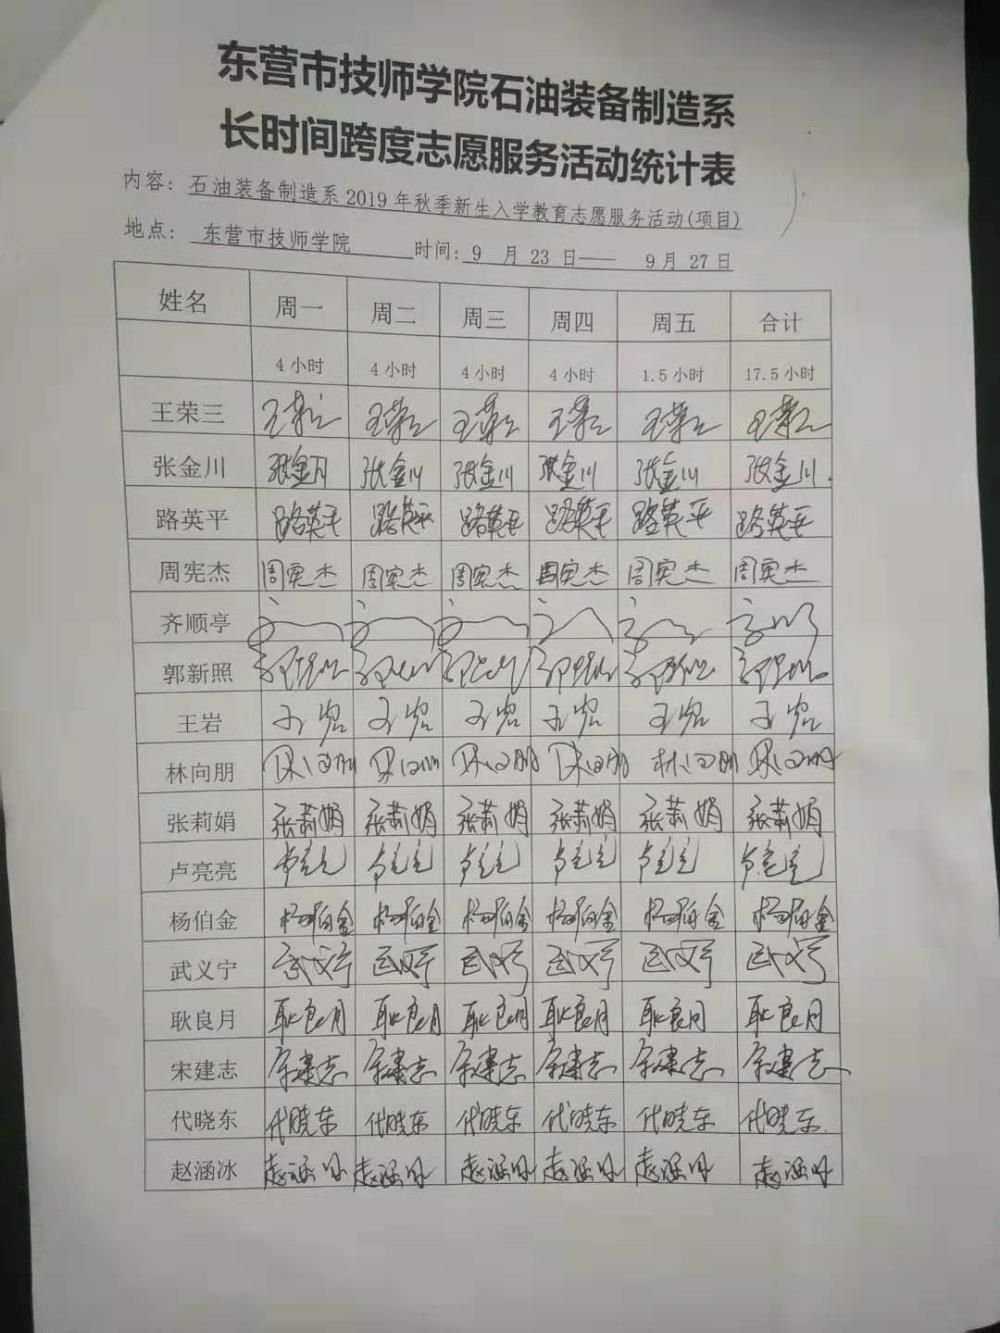 东营市技师学院石油装备制造系
长时间跨度志愿服务活动统计表
内容: 石油装备制造系2019年秋季新生入学教育志愿服务活动(项目)
地点: 东营市技师学院 时间: 9 月 23 日—— 9 月 27 日
姓名 周一 周二 周三 周四 周五 合计
4 小时 4 小时 4 小时 4 小时 1.5 小时 17.5 小时
王荣三 王荣三 王荣三 王荣三 王荣三 王荣三 王荣三
张金川 张金川 张金川 张金川 张金川 张金川 张金川
路英平 路英平 路英平 路英平 路英平 路英平 路英平
周宪杰 周宪杰 周宪杰 周宪杰 周宪杰 周宪杰 周宪杰
齐顺亭
郭新照
王岩 王岩 王岩 王岩 王岩 王岩 王岩
林向朋 林向朋 林向朋 林向朋 林向朋 林向朋 林向朋
张莉娟 张莉娟 张莉娟 张莉娟 张莉娟 张莉娟 张莉娟
卢亮亮 卢亮亮 卢亮亮 卢亮亮 卢亮亮 卢亮亮 卢亮亮
杨伯金 杨伯金 杨伯金 杨伯金 杨伯金 杨伯金 杨伯金
武义宁 武义宁 武义宁 武义宁 武义宁 武义宁 武义宁
耿良月 耿良月 耿良月 耿良月 耿良月 耿良月 耿良月
宋建志 宋建志 宋建志 宋建志 宋建志 宋建志 宋建志
代晓东 代晓东 代晓东 代晓东 代晓东 代晓东 代晓东
赵涵冰 赵涵冰 赵涵冰 赵涵冰 赵涵冰 赵涵冰 赵涵冰